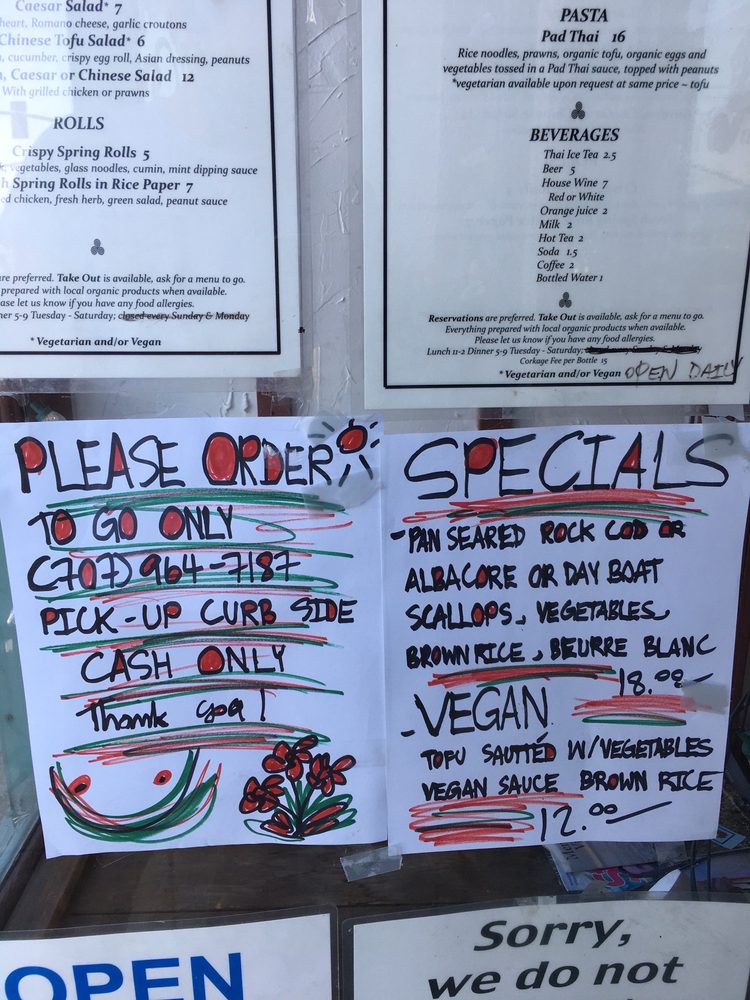 Caesar Salad* 7
heart, Romano cheese, garlic croutons
Chinese Tofu Salad* 6
cucumber, crispy egg roll, Asian dressing, peanuts
Caesar or Chinese Salad 12
With grilled chicken or prawns
ROLLS
Crispy Spring Rolls 5
vegetables, glass noodles, cumin, mint dipping sauce
Spring Rolls in Rice Paper 7
chicken, fresh herb, green salad, peanut sauce
are preferred. Take Out is available, ask for a menu to go.
prepared with local organic products when available.
let us know if you have any food allergies.
5-9 Tuesday - Saturday; closed every Sunday & Monday
* Vegetarian and/or Vegan
PASTA
Pad Thai 16
Rice noodles, prawns, organic tofu, organic eggs and
vegetables tossed in a Pad Thai sauce, topped with peanuts
*vegetarian available upon request at same price ~ tofu
BEVERAGES
Thai Ice Tea 2.5
Beer 5
House Wine 7
Red or White
Orange juice 2
Milk 2
Hot Tea 2
Soda 1.5
Coffee 2
Bottled Water 1
Reservations are preferred. Take Out is available, ask for a menu to go.
Everything prepared with local organic products when available.
Please let us know if you have any food allergies.
Lunch 11-2 Dinner 5-9 Tuesday - Saturday;
Corkage Fee per Bottle 15
*Vegetarian and/or Vegan OPEN DAILY
PLEASE ORDER
TO GO ONLY
(707) 964-7187
PICK-UP CURB SIDE
CASH ONLY
Thank you!
SPECIALS
- PAN SEARED ROCK COD OR
ALBACORE OR DAY BOAT
SCALLOPS, VEGETABLES,
BROWN RICE, BEURRE BLANC
18.00
- VEGAN
TOFU SAUTTÉD W/VEGETABLES
VEGAN SAUCE BROWN RICE
12.00
OPEN
Sorry,
we do not